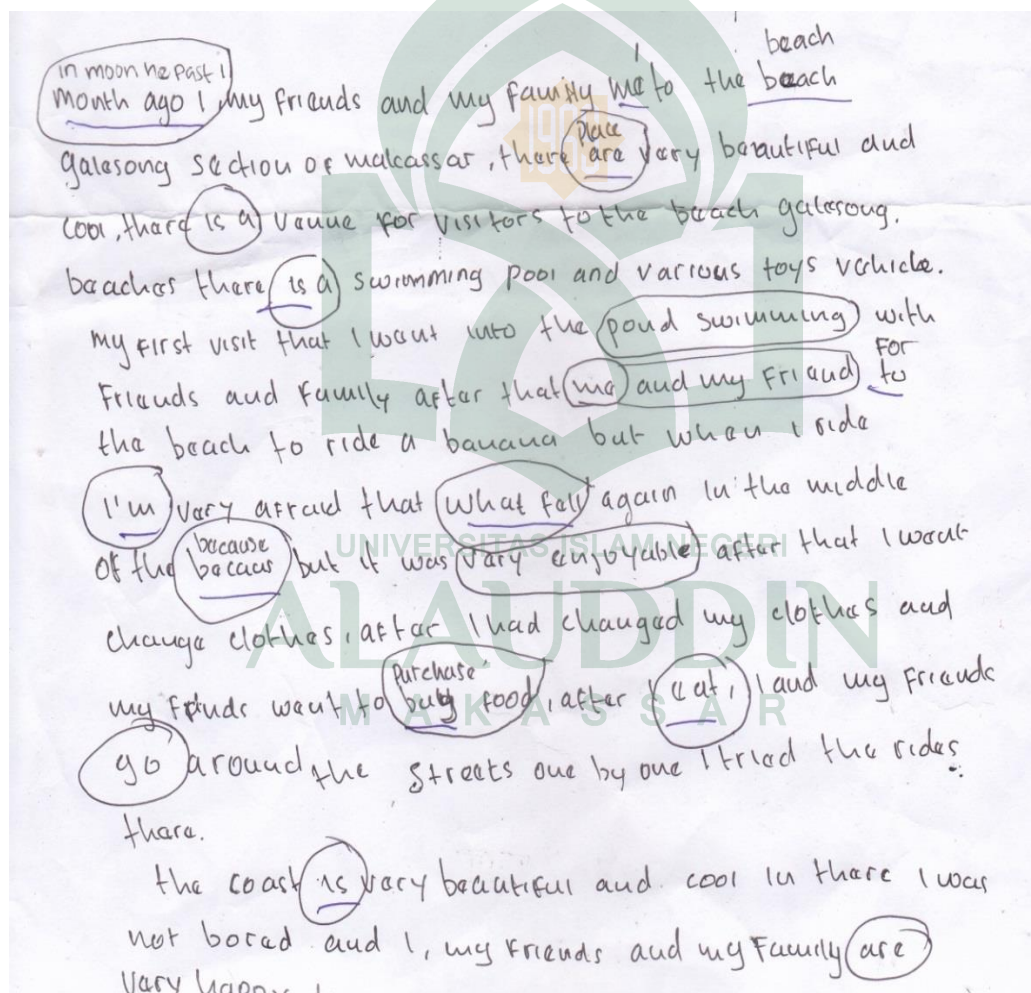 beach
in moon he past 1
month ago I, my friends and my family me to the beach
Place
galesong section of makassar, there are very beautiful and
cool, there is a venue for visitors to the beach galesong.
beaches there is a swimming pool and various toys vehicle.
my first visit that I went into the pond swimming with
For
Friends and Family after that me and my Friend to
the beach to ride a banana but when I ride
I'm very afraid that what fell again in the middle
because
of the becaus but it was very enjoyable after that I went
UNIVERSITAS ISLAM NEGERI
change clothes, after I had changed my clothes and
ALAUDDIN
Purchase
my went to buy food, after I eat, I and my friends
MAKASSAR
go around, the streets one by one I tried the rides
there.
the coast is very beautiful and cool in there I was
not bored and I, my Friends and my Family are
Very happy